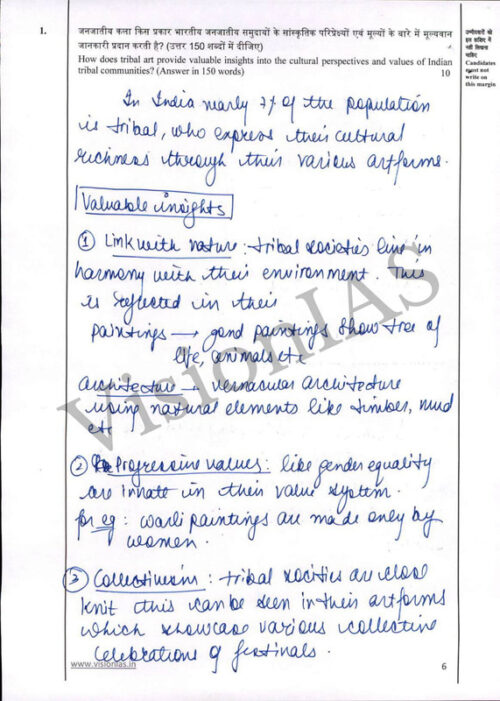 1. जनजातीय कला किस प्रकार भारतीय जनजातीय समुदायों के सांस्कृतिक परिप्रेक्ष्यों एवं मूल्यों के बारे में मूल्यवान
जानकारी प्रदान करती है? (उत्तर 150 शब्दों में दीजिए)
How does tribal art provide valuable insights into the cultural perspectives and values of Indian
tribal communities? (Answer in 150 words) 10
उम्मीदवारों को
इस हाशिए में
नहीं लिखना
चाहिए
Candidates
must not
write on
this margin
In India nearly 7% of the population
is tribal, who express their cultural
richness through their various artforms.
Valuable insights
① Link with nature: tribal societies live in
harmony with their environment. This
is reflected in their
paintings → gond paintings show tree of
life, animals etc
architecture → vernacular architecture
using natural elements like timber, mud
etc
② Progressive values: like gender equality
are innate in their value system.
for eg: warli paintings are made only by
women.
③ Collectivism: tribal socities are close
knit this can be seen in their artforms
which showcase various collective
celebrations of festivals.
www.visionias.in 6
VisionIAS